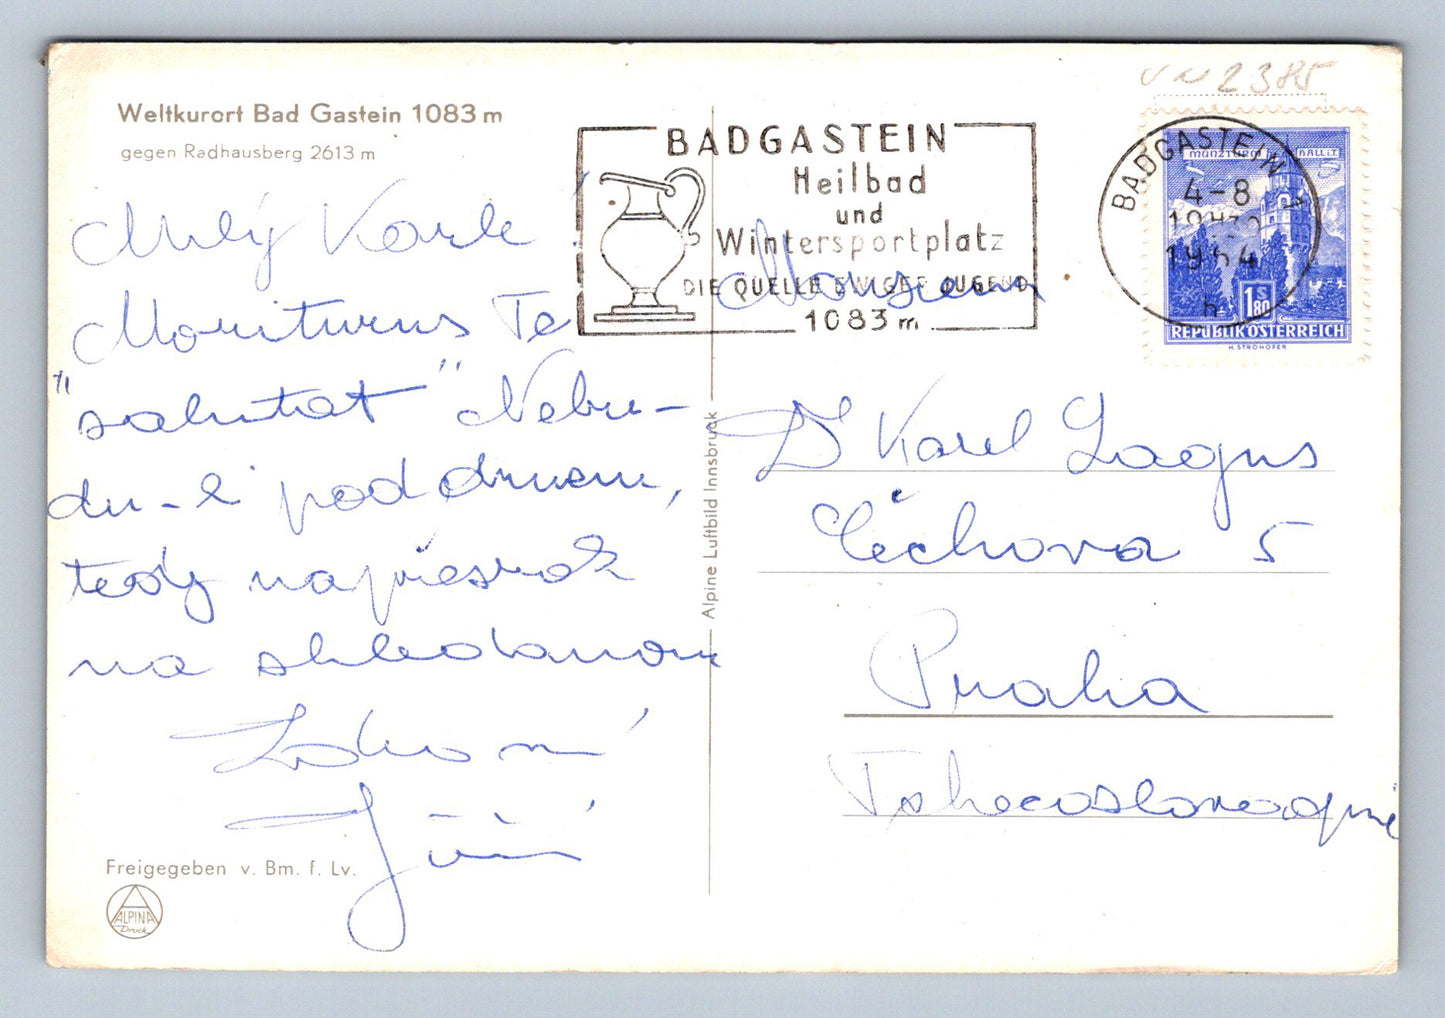 VN 2385
Weltkurort Bad Gastein 1083 m
gegen Radhausberg 2613 m
BADGASTEIN
Heilbad
und
Wintersportplatz
DIE QUELLE EWIGER JUGEND
1083 m
BADGASTEIN 1
4-8
h
MÜNZTURM HALL i.T.
1 S 80
REPUBLIK ÖSTERREICH
H. STROHOFER
Milý Karle!
Moriturus Te
"salutat" Nebu-
du-li pod drnem,
tedy napřesrok
na shledanou
Jiří
Monsieur
Dr Karel Lagus
Čechova 5
Praha
Tshecoslovaquie
Alpine Luftbild Innsbruck
Freigegeben v. Bm. f. Lv.
ALPINA
Druck